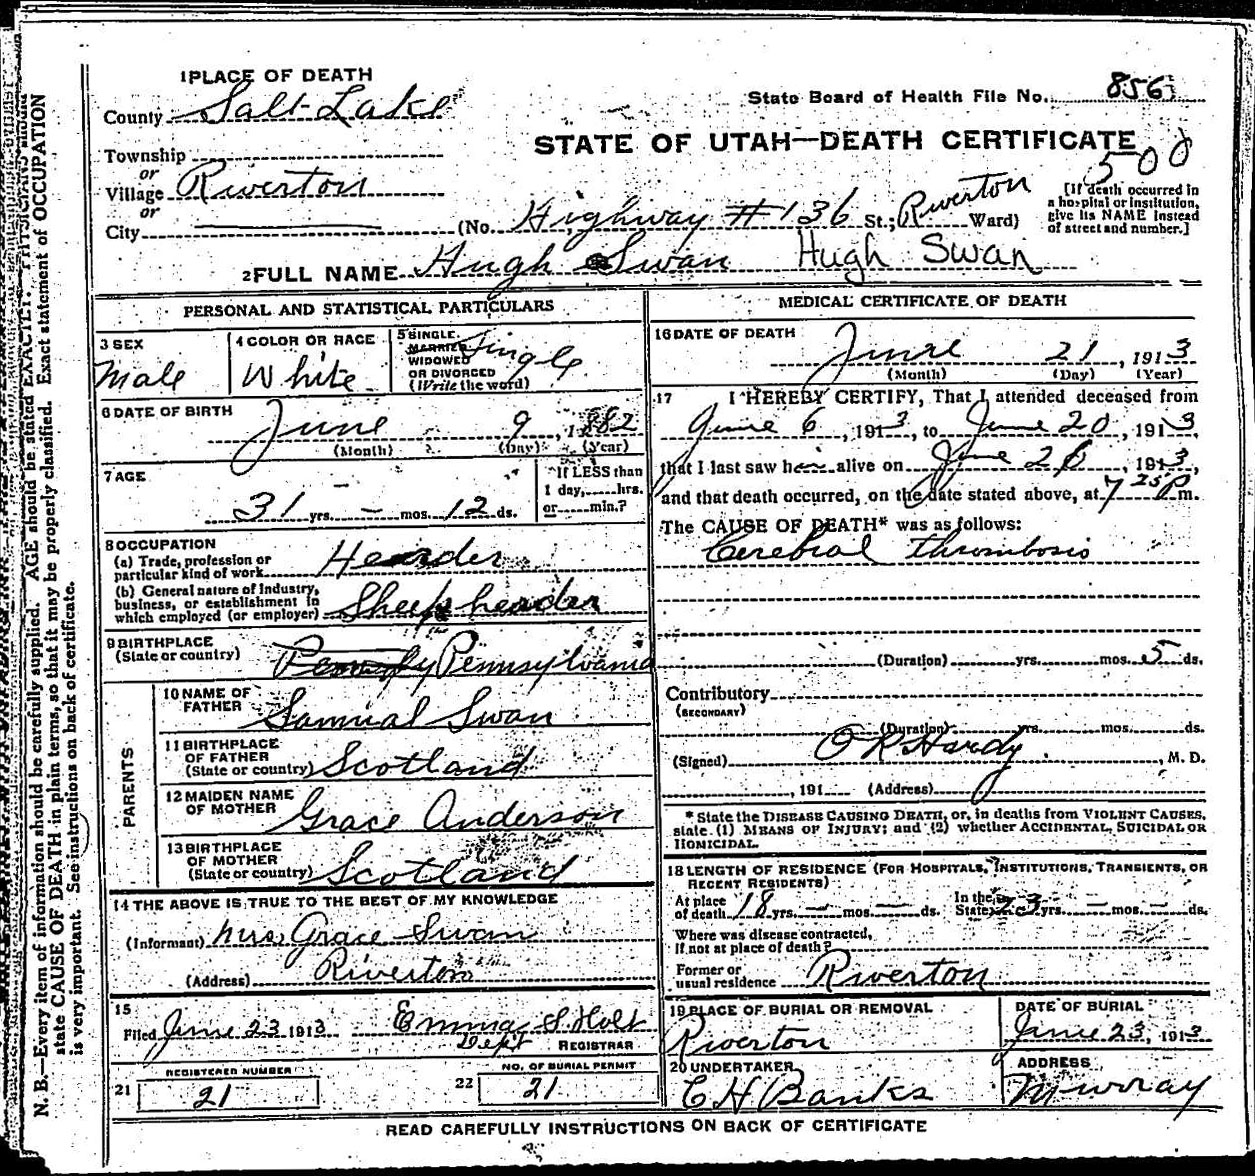 1 PLACE OF DEATH
County Salt Lake
State Board of Health File No. 856
STATE OF UTAH—DEATH CERTIFICATE
500
Township
or
Village Riverton
or
City (No. Highway #136 St.; Riverton Ward)
[If death occurred in
a hospital or institution,
give its NAME instead
of street and number.]
2 FULL NAME Hugh Swan Hugh Swan
PERSONAL AND STATISTICAL PARTICULARS
3 SEX
Male
4 COLOR OR RACE
White
5 SINGLE,
MARRIED
WIDOWED
OR DIVORCED
(Write the word)
Single
6 DATE OF BIRTH
June 9, 1882
(Month) (Day) (Year)
7 AGE
31 yrs. — mos. 12 ds.
If LESS than
1 day, hrs.
or min.?
8 OCCUPATION
(a) Trade, profession or
particular kind of work Hearder
(b) General nature of industry,
business, or establishment in
which employed (or employer) Sheep hearder
9 BIRTHPLACE
(State or country) Pennsylvania
PARENTS
10 NAME OF
FATHER Samual Swan
11 BIRTHPLACE
OF FATHER
(State or country) Scotland
12 MAIDEN NAME
OF MOTHER Grace Anderson
13 BIRTHPLACE
OF MOTHER
(State or country) Scotland
14 THE ABOVE IS TRUE TO THE BEST OF MY KNOWLEDGE
(Informant) Mrs. Grace Swan
(Address) Riverton
15
Filed June 23 1913 Emma S. Holt
Dept REGISTRAR
REGISTERED NUMBER
21 21
NO. OF BURIAL PERMIT
22 21
MEDICAL CERTIFICATE OF DEATH
16 DATE OF DEATH
June 21, 1913
(Month) (Day) (Year)
17 I HEREBY CERTIFY, That I attended deceased from
June 6, 1913, to June 20, 1913,
that I last saw him alive on June 20, 1913,
and that death occurred, on the date stated above, at 7 25 P m.
The CAUSE OF DEATH* was as follows:
Cerebral thrombosis
(Duration) yrs. mos. 5 ds.
Contributory
(SECONDARY)
(Duration) yrs. mos. ds.
(Signed) O R Hardy, M. D.
, 191 (Address)
* State the DISEASE CAUSING DEATH, or, in deaths from VIOLENT CAUSES,
state (1) MEANS OF INJURY; and (2) whether ACCIDENTAL, SUICIDAL OR
HOMICIDAL.
18 LENGTH OF RESIDENCE (FOR HOSPITALS, INSTITUTIONS, TRANSIENTS, OR
RECENT RESIDENTS)
At place
of death 18 yrs. — mos. — ds.
In the
State 23 yrs. — mos. — ds.
Where was disease contracted,
if not at place of death?
Former or
usual residence Riverton
19 PLACE OF BURIAL OR REMOVAL
Riverton
DATE OF BURIAL
June 23, 1913
20 UNDERTAKER
C H Banks
ADDRESS
Murray
READ CAREFULLY INSTRUCTIONS ON BACK OF CERTIFICATE
N. B.—Every item of information should be carefully supplied. AGE should be stated EXACTLY. PHYSICIANS should
state CAUSE OF DEATH in plain terms, so that it may be properly classified. Exact statement of OCCUPATION
is very important. See instructions on back of certificate.